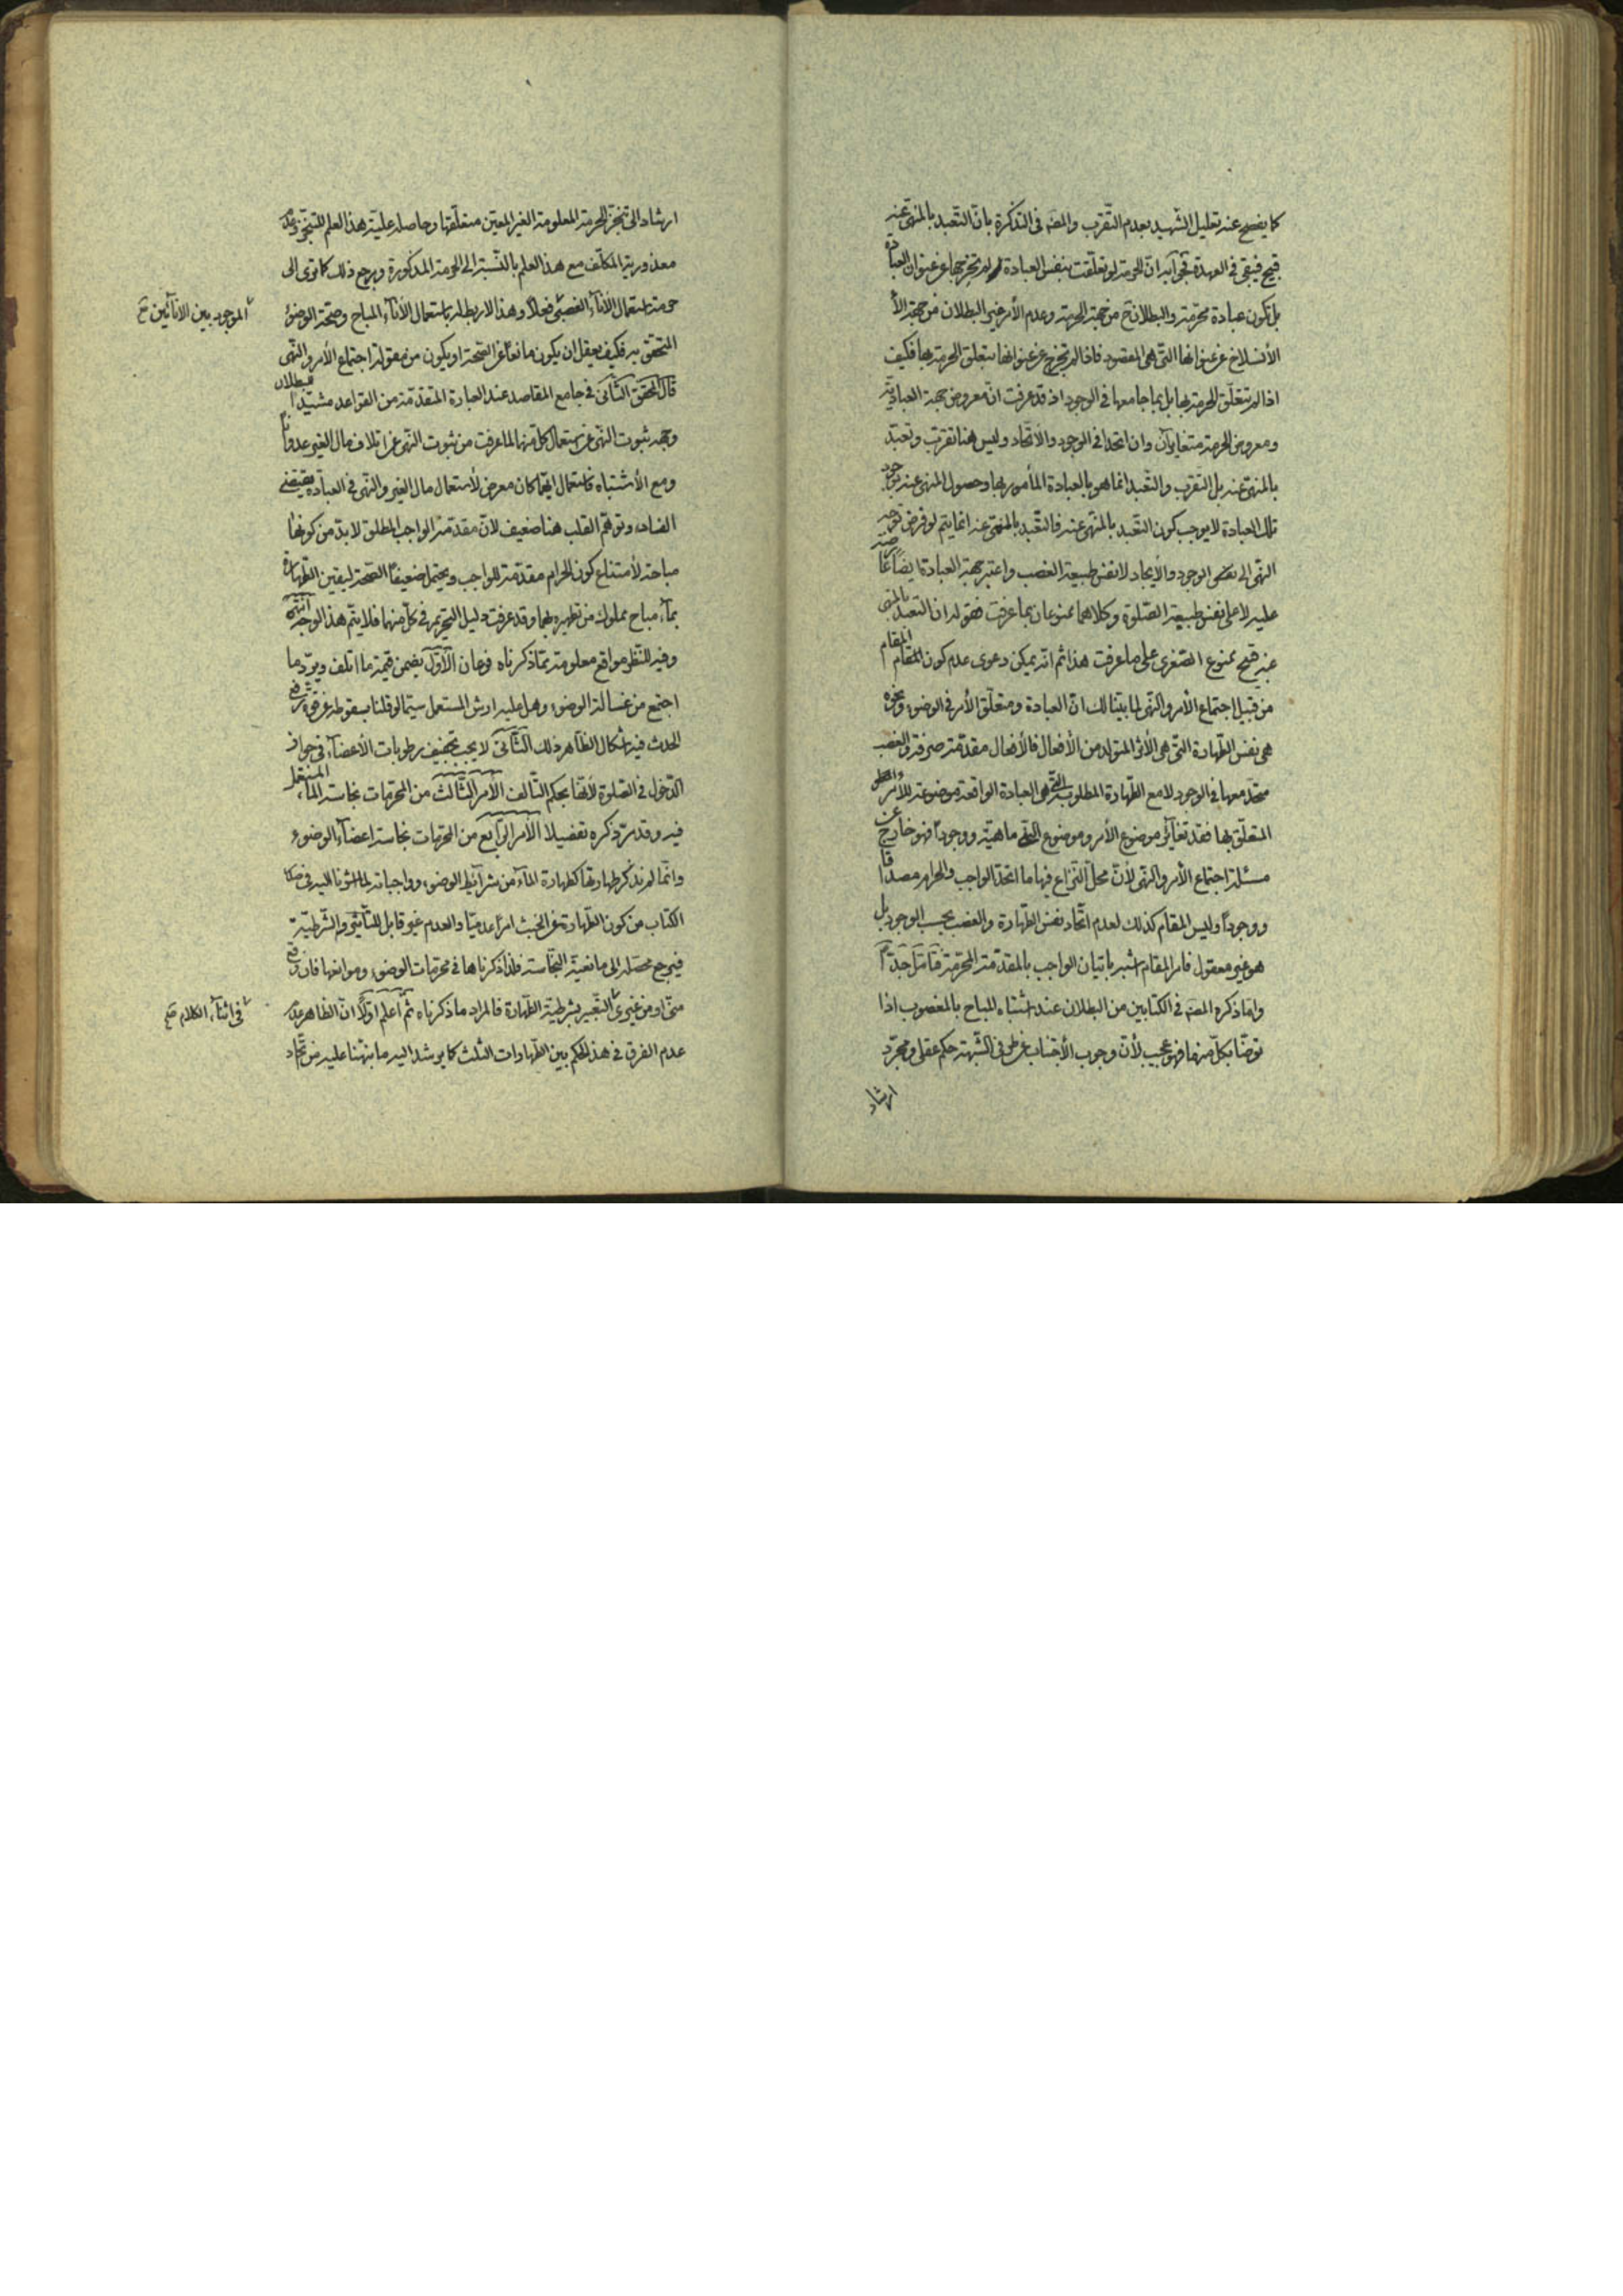 كما يفصح عنه تعليل الشهيد بعدم التقرب والمصنف في التذكرة بان التعبد بالمنهي عنه
قبيح فيبقى في العهدة فجوابه ان الحرمة لو تعلقت بنفس العبادة لم تخرجها عن عنوان العبادة
بل تكون عبادة محرمة والبطلان ح من جهة الحرمة وعدم الأمر غير البطلان من جهة
الأنسلاخ عن عنوانها التي هي المقصود فاذا لم تخرج عن عنوانها بتعلق الحرمة بها فكيف
اذا لم تتعلق الحرمة بها بل بما جامعها في الوجود اذ قد عرفت ان معروض جهة العبادية
ومعروض الحرمة متغايران وان اتحدا في الوجود والاتحاد وليس هنا تقرب وتعبد
بالمنهي عنه بل التقرب والتعبد انما هو بالعبادة المأمور بها وحصول المنهي عنه بوجود
تلك العبادة لا يوجب كون التعبد بالمنهي عنه فالتعبد بالمنهي عنه انما يتم لو فرض توجه
النهي الى نفس الوجود والأيجاد لا نفس طبيعة الغصب واعتبر جهة العبادة ايضا عارضة
عليه لا على نفس طبيعة الصلوة وكلاهما ممنوعان بما عرفت فقوله ان التعبد بالمنهي
عنه قبيح ممنوع الصغرى على ما عرفت هذا ثم انه يمكن دعوى عدم كون المقام
من قبيل اجتماع الأمر والنهي لما بينا لك ان العبادة ومتعلق الأمر في الوضوء ونحوه
هي نفس الطهارة التي هي الأثر المتولد من الأفعال فالأفعال مقدمة صرفة والغصب
متحد معها في الوجود لا مع الطهارة المطلوبة التي هي العبادة الواقعة موضوعة للأمر
المتعلق بها فقد تغاير موضوع الأمر وموضوع النهي ماهية ووجودا فهو خارج عن
مسئلة اجتماع الأمر والنهي لأن محل النزاع فيها ما اتحد الواجب والحرام مصداقا
ووجودا وليس المقام كذلك لعدم اتحاد نفس الطهارة والغصب بحسب الوجود بل
هو غير معقول فامر المقام اشبه باتيان الواجب بالمقدمة المحرمة فتأمل جدا
واما ذكره المصنف في الكتابين من البطلان عند اشتباه المباح بالمغصوب اذا
توضأ بكل منهما فهو عجيب لأن وجوب الأجتناب عن طرفي الشبهة حكم عقلي ومجرد
ارشاد
ارشاد الى تنجز الحرمة المعلومة الغير المعين متعلقها وحاصله علية هذا العلم للتنجز وعدم
معذورية المكلف مع هذا العلم بالنسبة الى الحرمة المذكورة ويرجع ذلك كما ترى الى
حرمة استعمال الأناء الغصبي فعلا وهذا لا ربط له باستعمال الأناء المباح وصحة الوضوء
الموجود بين الانائين صح
المتحقق به فكيف يعقل ان يكون مانعا عن الصحة او يكون من مقولة اجتماع الأمر والنهي
قال المحقق الثاني في جامع المقاصد عند العبارة المتقدمة من القواعد مشيدا للبطلان
وجهه ثبوت النهي عن استعمال كل منهما لما عرفت من ثبوت النهي عن اتلاف مال الغير عدوانا
ومع الأشتباه فاستعمال ايهما كان معرض لأستعمال مال الغير والنهي في العبادة يقتضي
الفساد وتوهم القلب هنا ضعيف لأن مقدمة الواجب المطلق لا بد من كونها
مباحة لأمتناع كون الحرام مقدمة للواجب ويحتمل ضعيفا الصحة ليقين الطهارة
بماء مباح مملوك من تطهيره بهما وقد عرفت دليل التحريم في كل منهما فلا يتم هذا الوجه انتهى
وفيه للنظر مواقع معلومة مما ذكرناه فرعان الأول يضمن قيمة ما اتلف ويرد ما
اجتمع من غسالة الوضوء وهل عليه ارش المستعمل سيما لو قلنا بسقوطه عن قوة رفع
الحدث فيه اشكال الظاهر ذلك الثاني لا يجب تجفيف رطوبات الأعضاء في جواز
الدخول في الصلوة لأنها بحكم التالف الأمر الثالث من المحرمات نجاسة الماء المستعمل
فيه وقد مر ذكره تفصيلا الأمر الرابع من المحرمات نجاسة اعضاء الوضوء
وانما لم نذكر طهارتها كطهارة الماء من شرائط الوضوء وواجباته لما اشرنا اليه في
الكتاب من كون الطهارة عن الخبث امرا عدميا والعدم غير قابل للتأثير والشرطية
فيرجع محصله الى مانعية النجاسة فلذا ذكرناها في محرمات الوضوء وموانعها فان وقع
مني او من غيري التعبير بشرطية الطهارة فالمراد ما ذكرناه ثم اعلم اولا ان الظاهر
في اثناء الكلام صح
عدم الفرق في هذا الحكم بين الطهارات الثلث كما يرشد اليه ما نبهنا عليه من اتحاد